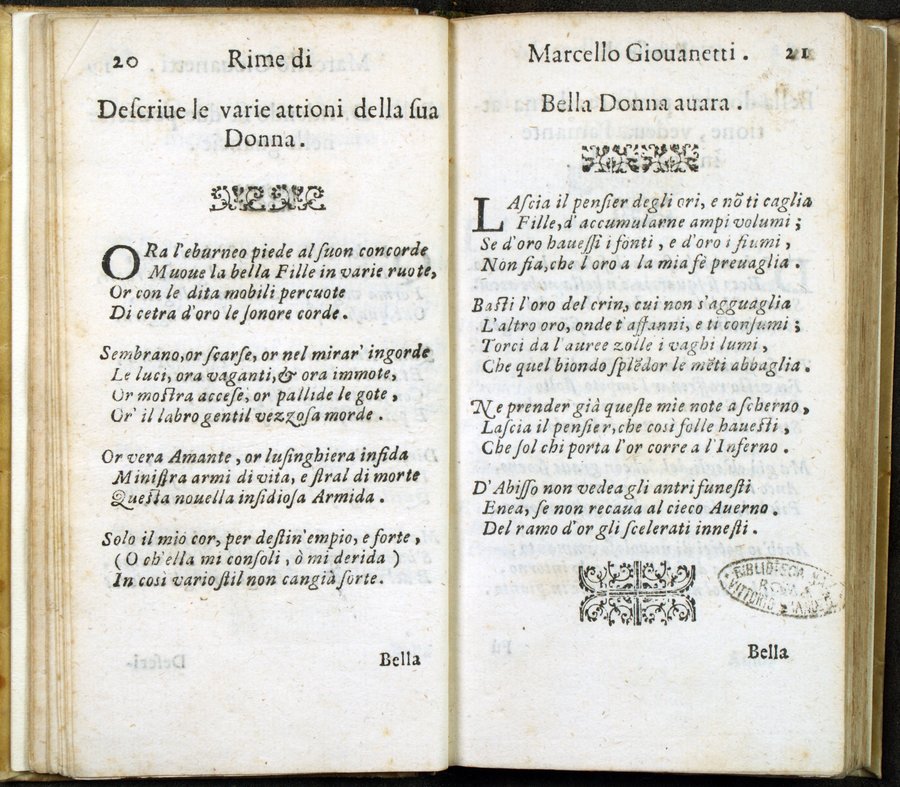 20 Rime di
Deſcriue le varie attioni della ſua
Donna.
ORa l'eburneo piede al ſuon concorde
Muoue la bella Fille in varie ruote,
Or con le dita mobili percuote
Di cetra d'oro le ſonore corde.
Sembrano, or ſcarſe, or nel mirar' ingorde
Le luci, ora vaganti, & ora immote,
Or moſtra acceſe, or pallide le gote,
Or' il labro gentil vezzoſa morde.
Or vera Amante, or luſinghiera infida
Miniſtra armi di vita, e ſtral di morte
Queſta nouella inſidioſa Armida.
Solo il mio cor, per deſtin'empio, e forte,
(O ch'ella mi conſoli, ò mi derida)
In così vario ſtil non cangia ſorte.
Bella
Marcello Giouanetti. 21
Bella Donna auara.
LAſcia il penſier degli ori, e nõ ti caglia
Fille, d'accumularne ampi volumi;
Se d'oro haueſſi i fonti, e d'oro i fiumi,
Non fia, che l'oro a la mia fè preuaglia.
Baſti l'oro del crin, cui non s'agguaglia
L'altro oro, onde t'affanni, e ti conſumi;
Torci da l'auree zolle i vaghi lumi,
Che quel biondo ſplẽdor le mẽti abbaglia.
Ne prender già queſte mie note a ſcherno,
Laſcia il penſier, che così folle haueſti,
Che ſol chi porta l'or corre a l'Inferno.
D'Abiſſo non vedea gli antri funeſti
Enea, ſe non recaua al cieco Auerno.
Del ramo d'or gli ſcelerati inneſti.
BIBLIOTECA
VITTORIO
Bella